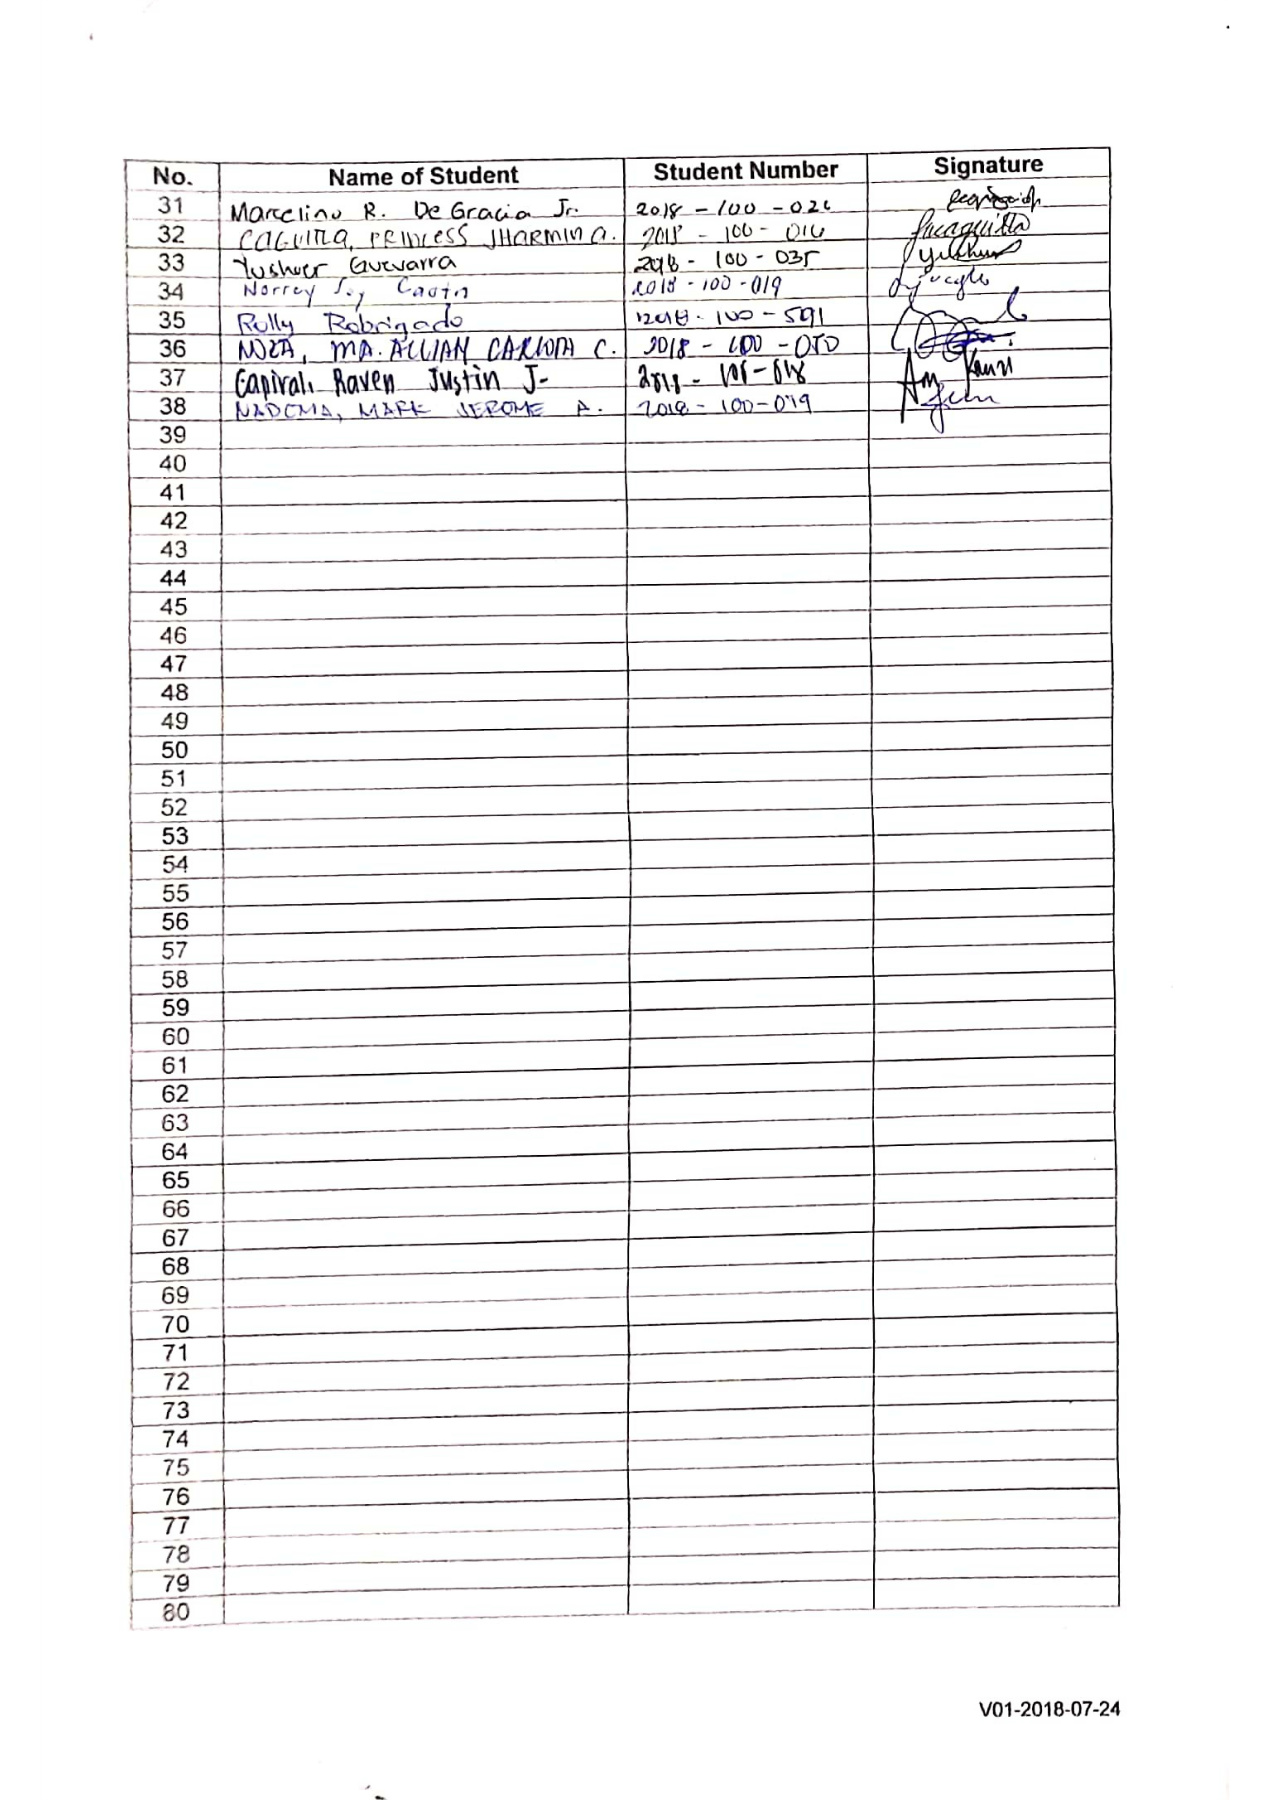 No. Name of Student Student Number Signature
31 Marcelino R. De Gracia Jr. 2018 - 100 - 026
32 PRINCESS JHARMIN A. 2018 - 100 - 016
33 Guevarra 2018 - 100 - 035
34 Norrey 2018 - 100 - 019
35 Rolly Robrigado 2018 - 100 - 591
36 MA. ALLIAH CARLOTA C. 2018 - 100 - 050
37 Capirali Raven Justin J-
38 MARK JEROME A. 2018 - 100 - 049
39
40
41
42
43
44
45
46
47
48
49
50
51
52
53
54
55
56
57
58
59
60
61
62
63
64
65
66
67
68
69
70
71
72
73
74
75
76
77
78
79
80
V01-2018-07-24